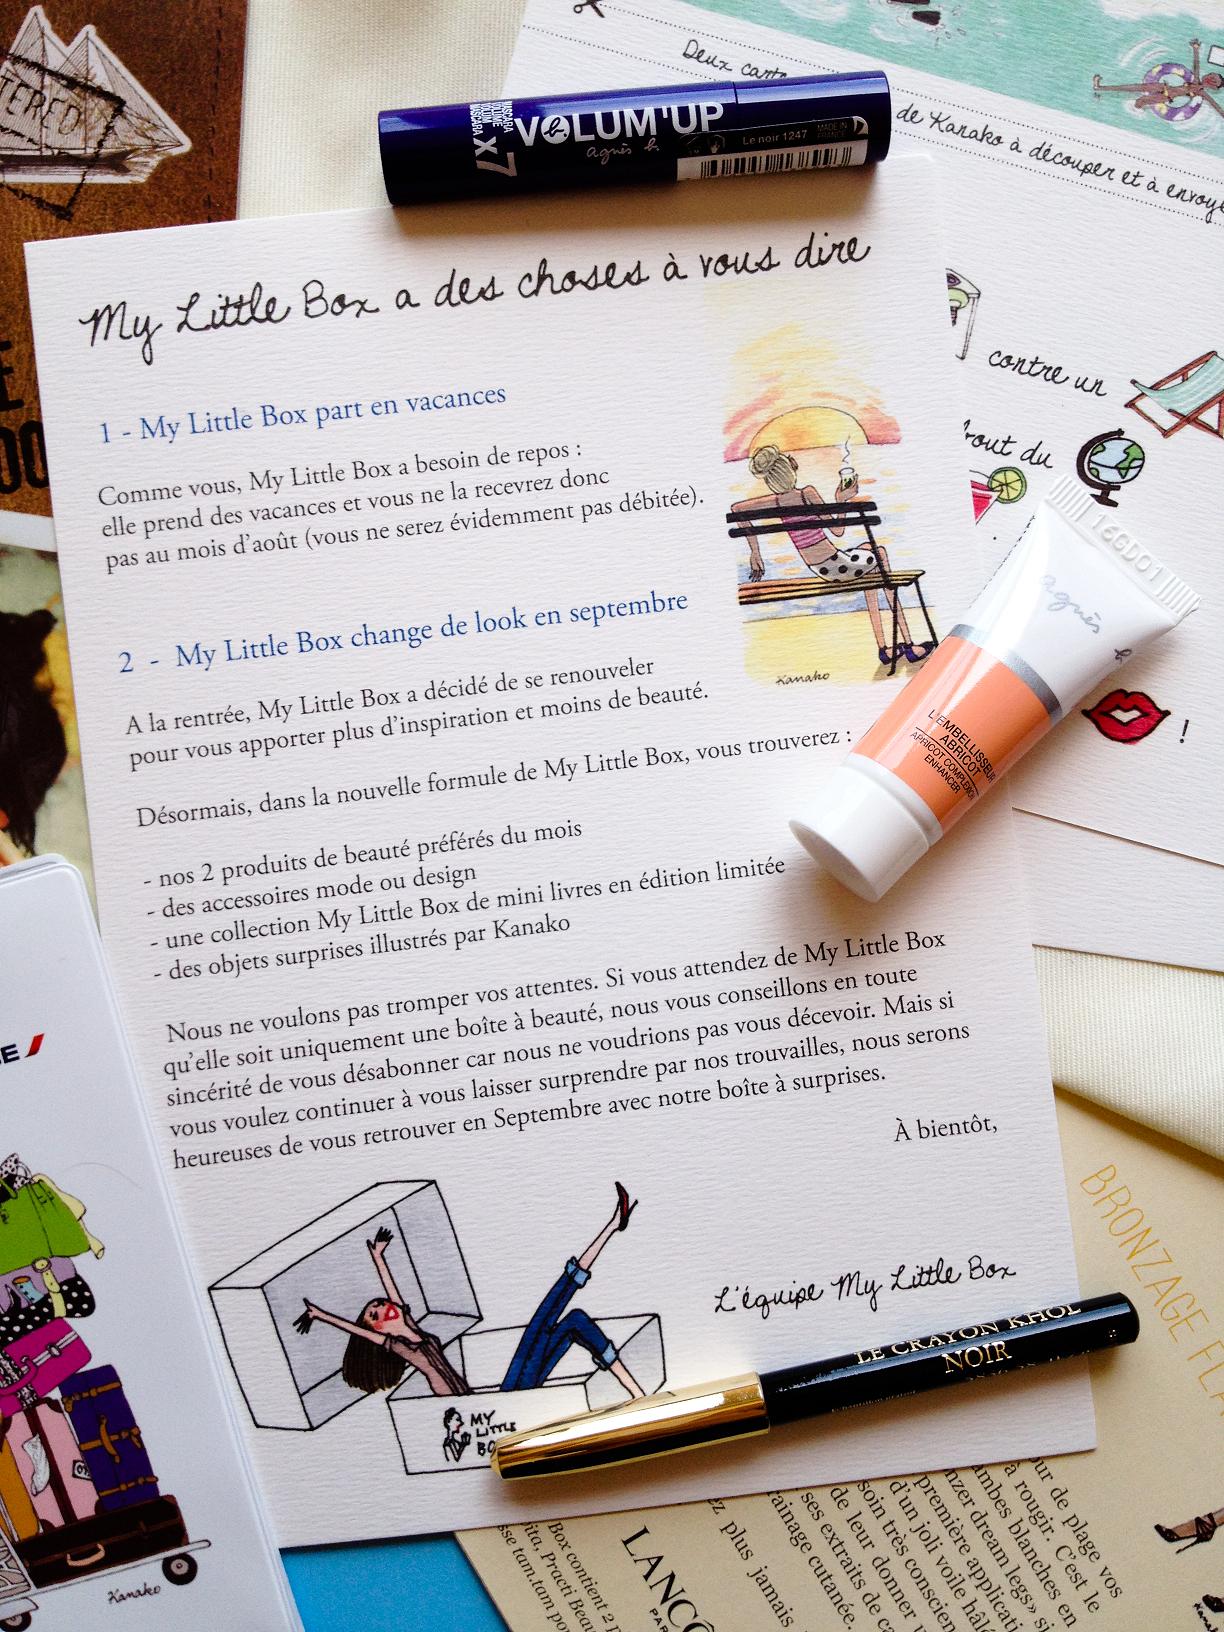 TERED
Deux cart
de Kanako à découper et à envoye
MASCARA
VOLUME
VOLUM
MASCARA
X7
VOLUM'UP
agnès b.
Le noir 1247
MADE IN
FRANCE
My Little Box a des choses à vous dire
1 - My Little Box part en vacances
Comme vous, My Little Box a besoin de repos :
elle prend des vacances et vous ne la recevrez donc
pas au mois d'août (vous ne serez évidemment pas débitée).
Kanako
2 - My Little Box change de look en septembre
A la rentrée, My Little Box a décidé de se renouveler
pour vous apporter plus d'inspiration et moins de beauté.
Désormais, dans la nouvelle formule de My Little Box, vous trouverez :
- nos 2 produits de beauté préférés du mois
- des accessoires mode ou design
- une collection My Little Box de mini livres en édition limitée
- des objets surprises illustrés par Kanako
Nous ne voulons pas tromper vos attentes. Si vous attendez de My Little Box
qu'elle soit uniquement une boîte à beauté, nous vous conseillons en toute
sincérité de vous désabonner car nous ne voudrions pas vous décevoir. Mais si
vous voulez continuer à vous laisser surprendre par nos trouvailles, nous serons
heureuses de vous retrouver en Septembre avec notre boîte à surprises.
À bientôt,
L'équipe My Little Box
MY
LITTLE
BO
contre un
bout du
!
16GD01
agnès b.
L'EMBELLISSEUR
ABRICOT
APRICOT COMPLEXION
ENHANCER
LE CRAYON KHOL
NOIR
Kanako
BRONZAGE FLA
LANCÔ
PAR
our de plage vos
à rougir. C'est le
ambes blanches en
nzer dream legs» si
première applicati
d'un joli voile hâlé
soin très conscien
de leur donner
ses extraits de ca
rainage cutanée.
ez plus jamais
Box contient 2 p